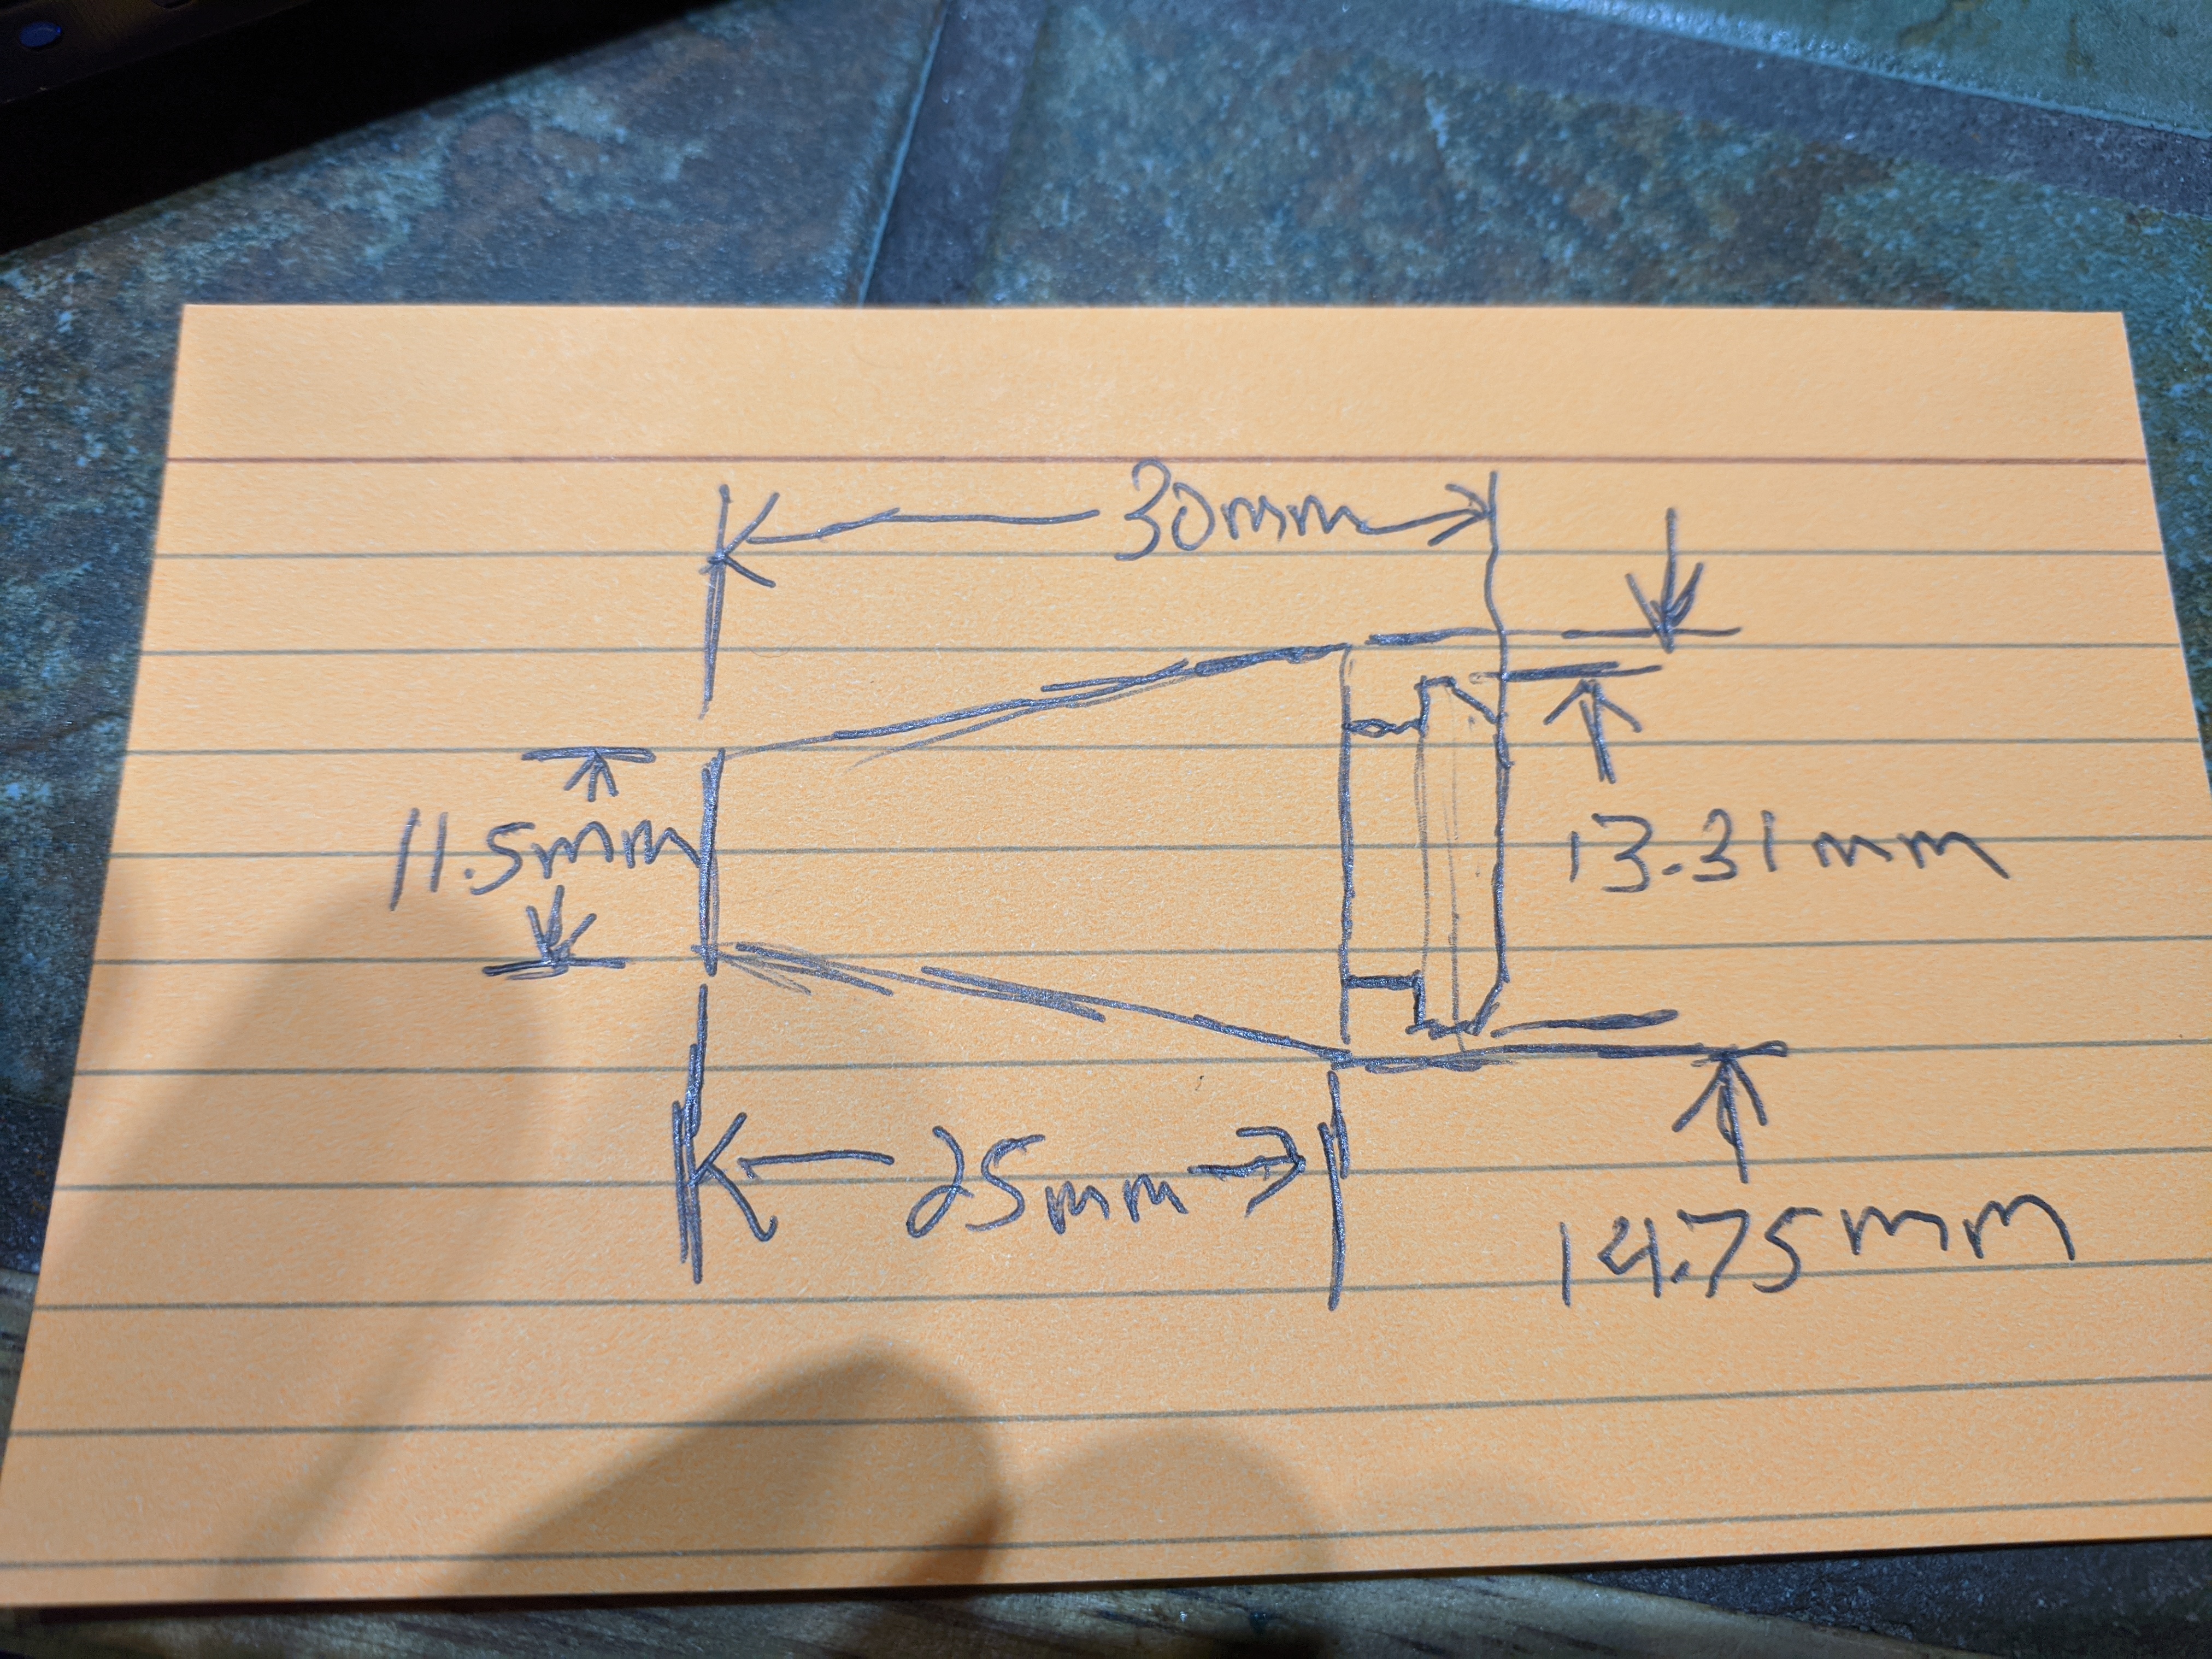 30mm
11.5mm
13.31mm
25mm
14.75mm